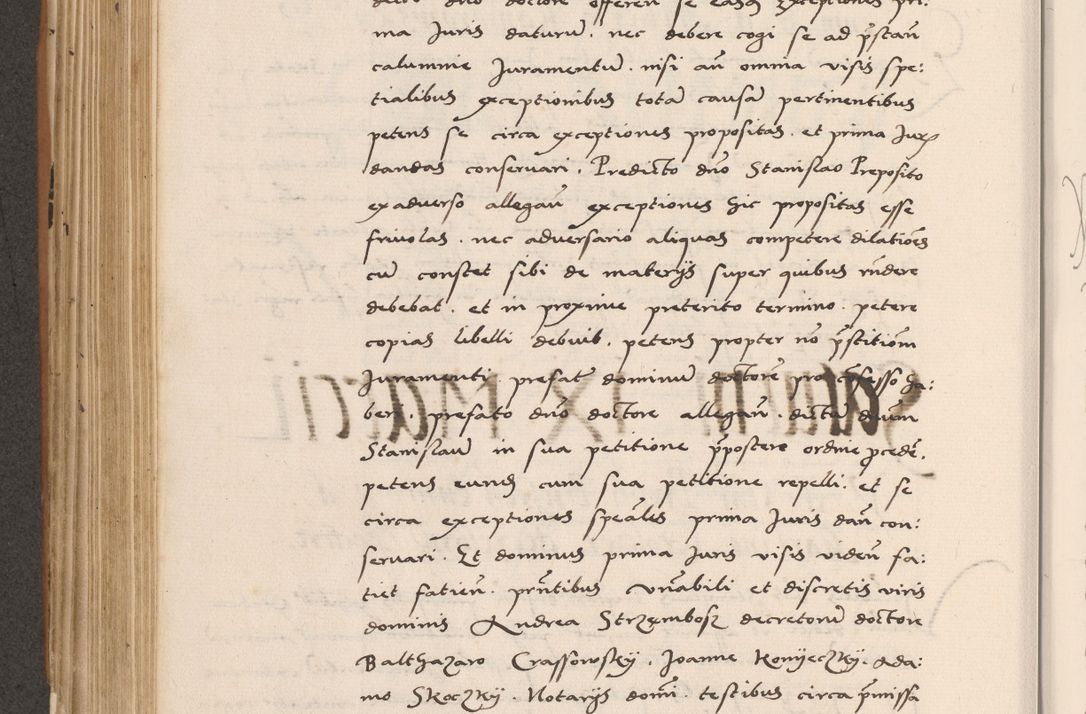 dicto dno doctore offeren se easdꝫ exceptiones pri:
ma Juris daturū. nec debere cogi se ad p̄stan̄
calumnie Juramentū. nisi an̄ omnia visis spe:
tialibus exceptionibus totā causā pertinentibus
petens se circa exceptiones propositas. et prima Juꝝ
dandas conservari. Predicto dn̄o Stanislao Preposito
ex adverso allegan̄ exceptiones hic propositas esse
frivolas. nec adversario aliquas competere dilatiōes
cū constet sibi de materijs super quibus rn̄dere
debebat. et in proxime preterito termino petere
copias libelli debuit. petens propter nō p̄stitiōm
Juramenti prefatū dominū doctorē pro cōfesso ha:
beri. prefato dn̄o doctore allegan̄. dictū dnum
Stanislaū in sua petitione p̄postere ordine ꝓcedē.
petens eundꝫ cum sua petitione repelli. et se
circa exceptiones speāles prima Juris dan̄ con:
servari. Et dominus prima Juris visis viden̄ fa:
tiet fatien̄. pn̄tibus Vn̄abili et discretis viris
dominis Andrea Strzembosz decretorū doctore
Balthazaro Crassowsky. Joanne Konyeczky. Ada:
mo Skoczky. Notarijs domī. testibus circa p̄missa